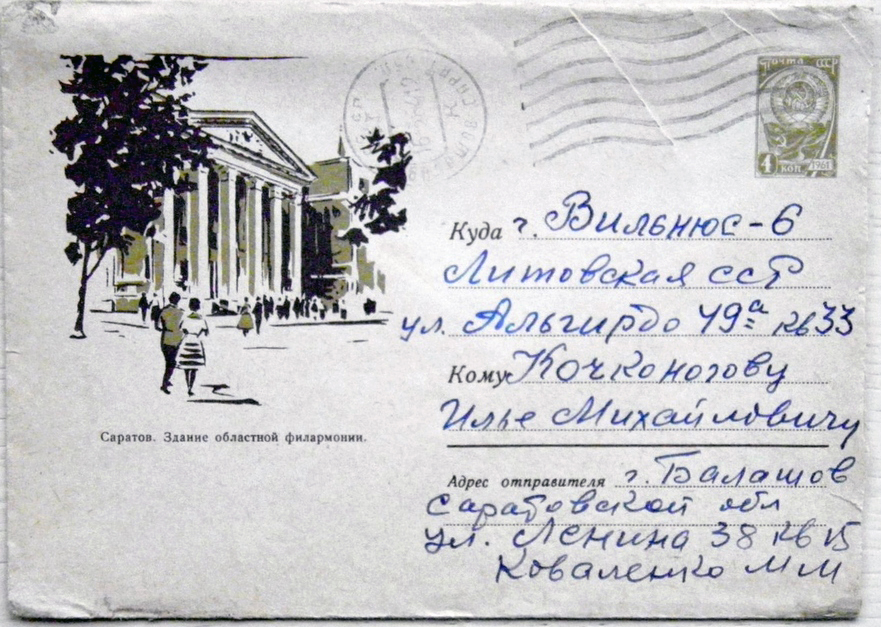 Почта СССР
4 коп
1961
Куда г. Вильнюс-6
Литовская сср
ул. Альгирдо 49а кв 33
Кому Кочконогову
Илье Михайловичу
Саратов. Здание областной филармонии.
Адрес отправителя г. Балашов
Саратовской обл
ул. Ленина 38 кв 15
Коваленко М М